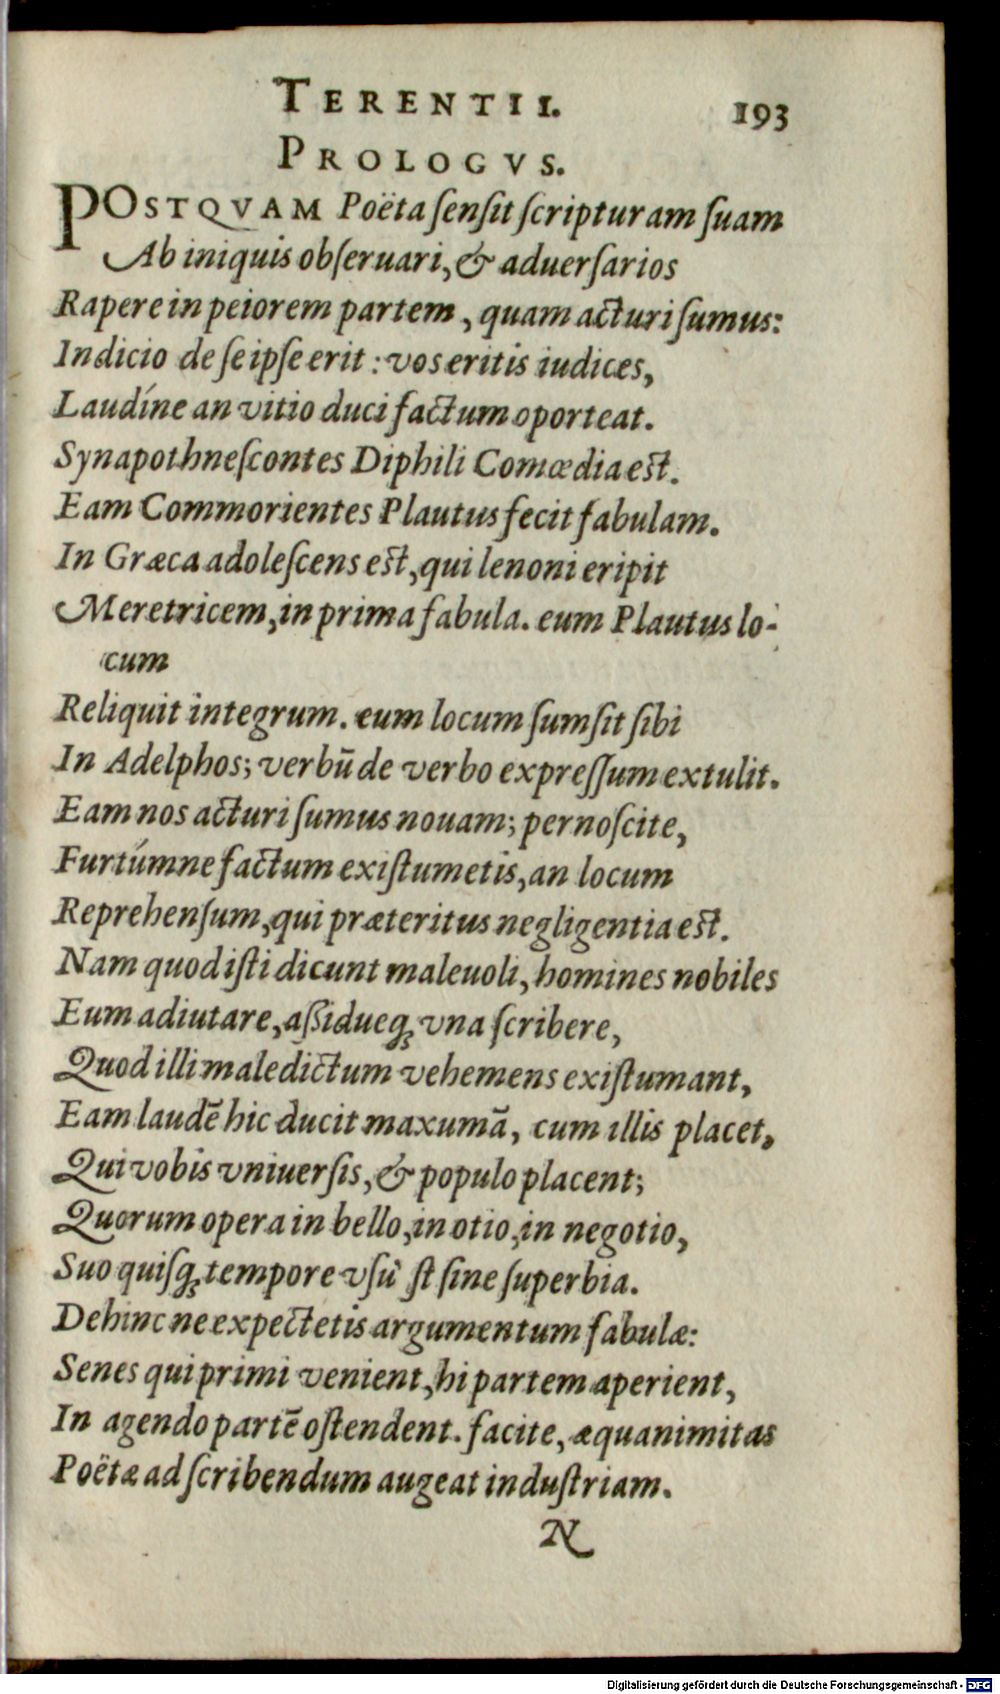 TERENTII. 193
PROLOGVS.
POSTQVAM Poëta senſit ſcripturam ſuam
Ab iniquis obſeruari, & aduerſarios
Rapere in peiorem partem, quam acturi ſumus:
Indicio de ſe ipſe erit: vos eritis iudices,
Laudíne an vitio duci factum oporteat.
Synapothneſcontes Diphili Comœdia est.
Eam Commorientes Plautus fecit fabulam.
In Græca adoleſcens est, qui lenoni eripit
Meretricem, in prima fabula. eum Plautus lo-
cum
Reliquit integrum. eum locum ſumſit ſibi
In Adelphos; verbū de verbo expreſſum extulit.
Eam nos acturi ſumus nouam; pernoſcite,
Furtúmne factum exiſtumetis, an locum
Reprehenſum, qui præteritus negligentia est.
Nam quod iſti dicunt maleuoli, homines nobiles
Eum adiutare, aßidueq; vna ſcribere,
Quod illi maledictum vehemens exiſtumant,
Eam laudē hic ducit maxumā, cum illis placet,
Qui vobis vniuerſis, & populo placent;
Quorum opera in bello, in otio, in negotio,
Suo quiſq; tempore vſu' ſt ſine ſuperbia.
Dehinc ne expectetis argumentum fabulæ:
Senes qui primi venient, hi partem aperient,
In agendo partē oſtendent. facite, æquanimitas
Poëtæ ad ſcribendum augeat induſtriam.
N
Digitalisierung gefördert durch die Deutsche Forschungsgemeinschaft - DFG